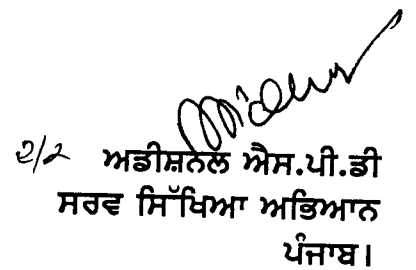 2/2 ਅਡੀਸ਼ਨਲ ਐਸ.ਪੀ.ਡੀ
ਸਰਵ ਸਿੱਖਿਆ ਅਭਿਆਨ
ਪੰਜਾਬ।